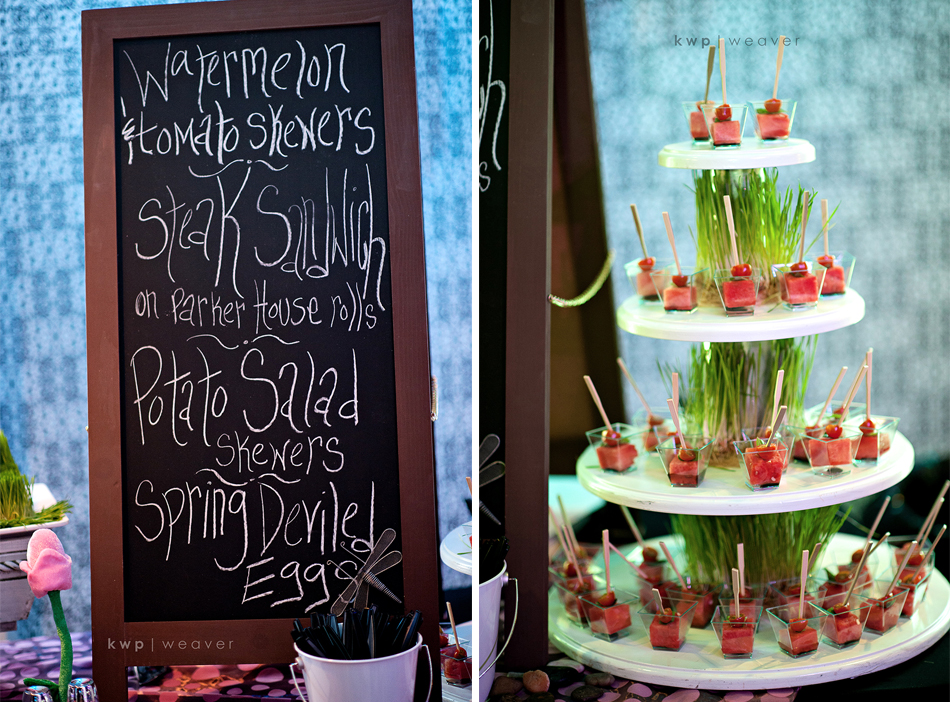 Watermelon
& tomato skewers
Steak Sandwich
on Parker House rolls
Potato Salad
skewers
Spring Deviled
Eggs
kwp | weaver
kwp | weaver